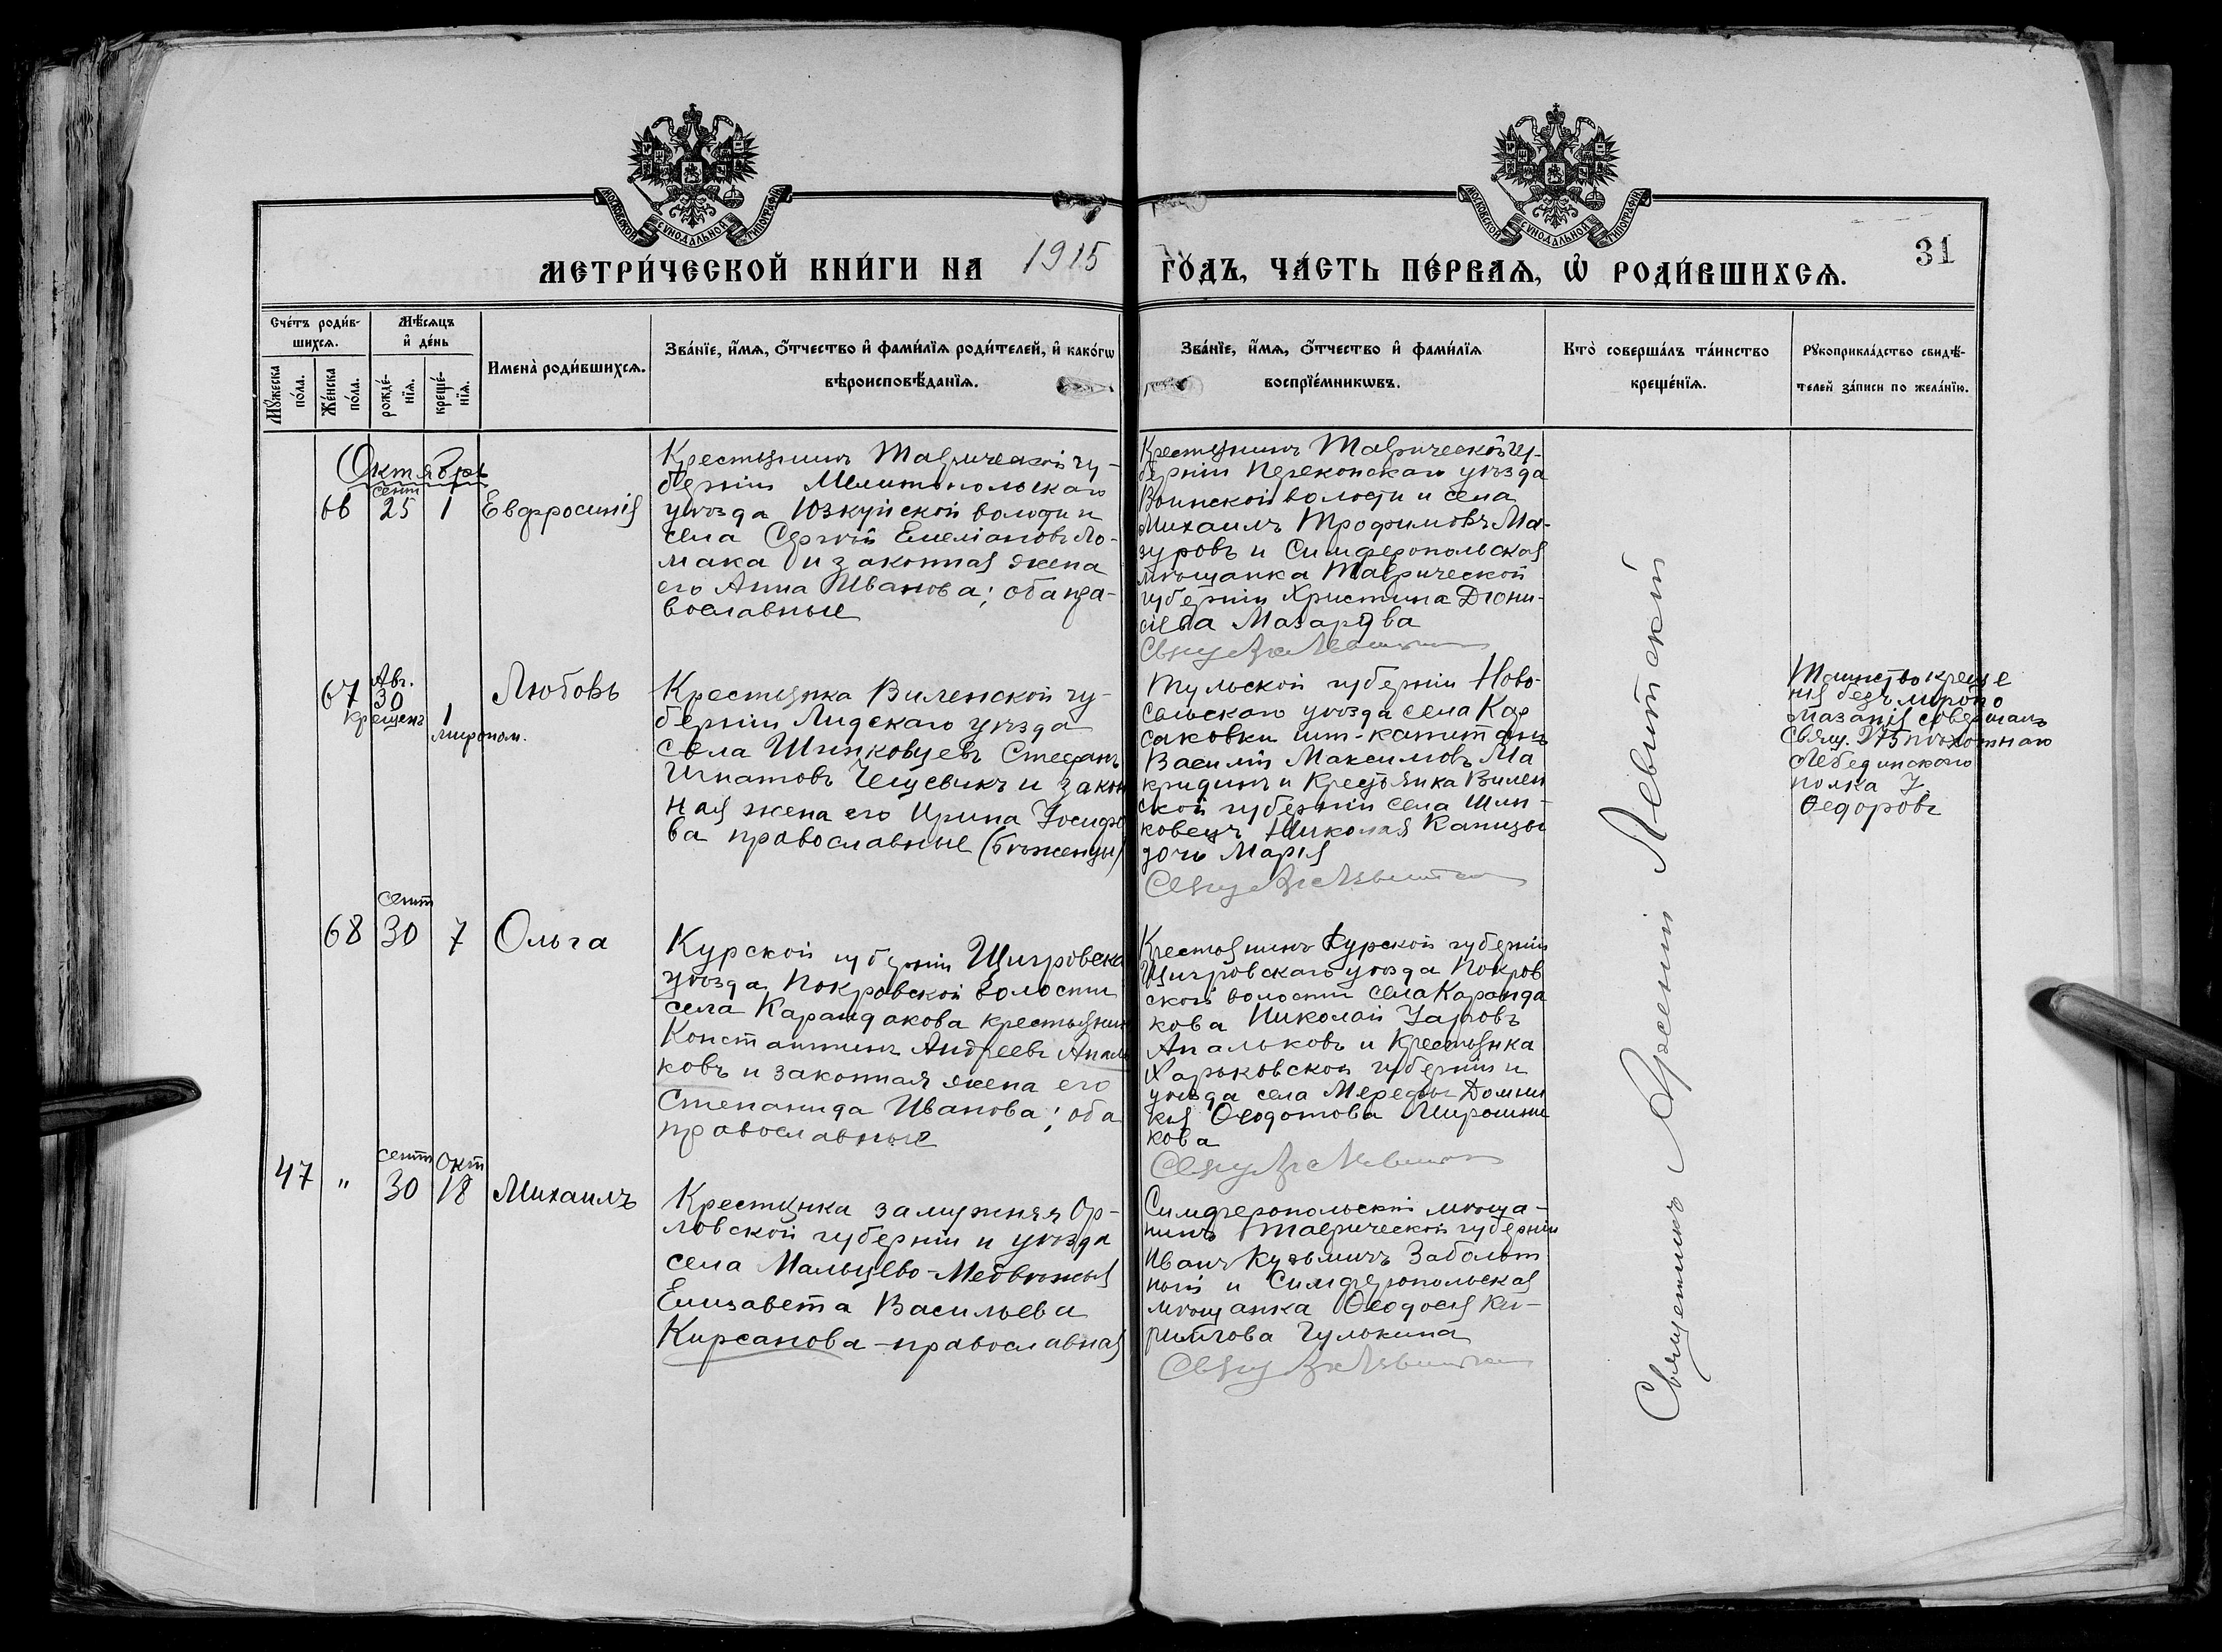 МОСКОВСКОЙ СѴНОДАЛЬНОЙ ТИПОГРАФІИ
МОСКОВСКОЙ СѴНОДАЛЬНОЙ ТИПОГРАФІИ
31
МЕТРИ́ЧЕСКОЙ КНИ́ГИ НА 1915 ГО́ДЪ, ЧА́СТЬ ПЕ́РВАѦ, Ѡ҆ РОДИ́ВШИХСѦ.
Сче́тъ роди́в-
шихсѧ.
Мꙋ́жеска
по́ла.
Же́нска
по́ла.
Мѣ́сѧцъ
и҆ де́нь
рожде́-
нїѧ.
креще́-
нїѧ.
Имена̀ роди́вшихсѧ.
Зва́нїе, и҆́мѧ, ѻ҆́тчество и҆ фами́лїѧ роди́телей, и҆ како́гѡ
вѣроисповѣ́данїѧ.
Зва́нїе, и҆́мѧ, ѻ҆́тчество и҆ фами́лїѧ
воспрїе́мникѡвъ.
Кто̀ соверша́лъ та́инство
креще́нїѧ.
Рꙋкоприкла́дство свидѣ́-
телей за́писи по жела́нїю.
Октябрь
66
сент
25
1
Евфросинія
Крестьянинъ Таврической гу-
берніи Мелитопольскаго
уѣзда Юзкуйской волости и
села Сергѣй Емеліановъ Ло-
мака и законная жена
его Анна Иванова; оба пра-
вославные
Крестьянинъ Таврической гу-
берніи Перекопскаго уѣзда
Воинской волости и села
Михаилъ Трофимовъ Ма-
зуровъ и Симферопольская
мѣщанка Таврической
губерніи Христина Діони-
сіева Мазарова
67
Авг.
30
крещенъ
1
миропом.
Любовь
Крестьянка Виленской гу-
берніи Лидскаго уѣзда
села Шинковцевъ Стефанъ
Игнатовъ Чещевикъ и закон
ная жена его Ирина Іосифо
ва православные (бѣженцы)
Тульской губерніи Ново-
сельскаго уѣзда села Кор
саковки шт-капитанъ
Василій Максимовъ Ма
кридинъ и Крестьянка Вилен
ской губерніи села Шин-
ковецъ Николая Капицы
дочь Марія
Таинство креще
нія безъ миропо
мазанія совершалъ
свящ. 175 пѣхотнаго
Лебединскаго
полка І.
Ѳедоровъ
68
сент
30
7
Ольга
Курской губерніи Щигровска
уѣзда Покровской волости
села Карандакова крестьянинъ
Константинъ Андреевъ Апаль
ковъ и законная жена его
Степанида Иванова; оба
православные
Крестьянинъ Курской губерніи
Щигровскаго уѣзда Покров
ской волости села Каранда
кова Николай
Апальковъ и Крестьянка
Харьковской губерніи и
уѣзда села Мерефы Домни
кія Ѳеодотова Мирошни
кова
47
"
сент
30
окт
18
Михаилъ
Крестьянка замужняя Ор-
ловской губерніи и уѣзда
села Мальцево-Медвѣжья
Елизавета Васильева
Кирсанова - православная
Симферопольскій мѣща-
нинъ Таврической губерніи
Иванъ Кузьмичъ Заболот
ный и Симферопольская
мѣщанка Ѳеодосія Ки-
риллова Гулькина
Священникъ Арсеній Левитскій